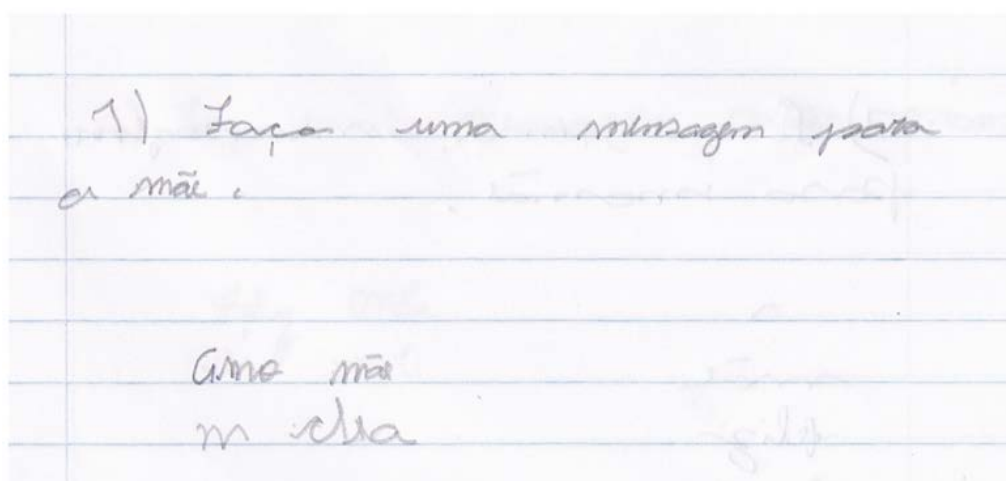 1) Faça uma mensagem para
a mãe.
amo mãe
m